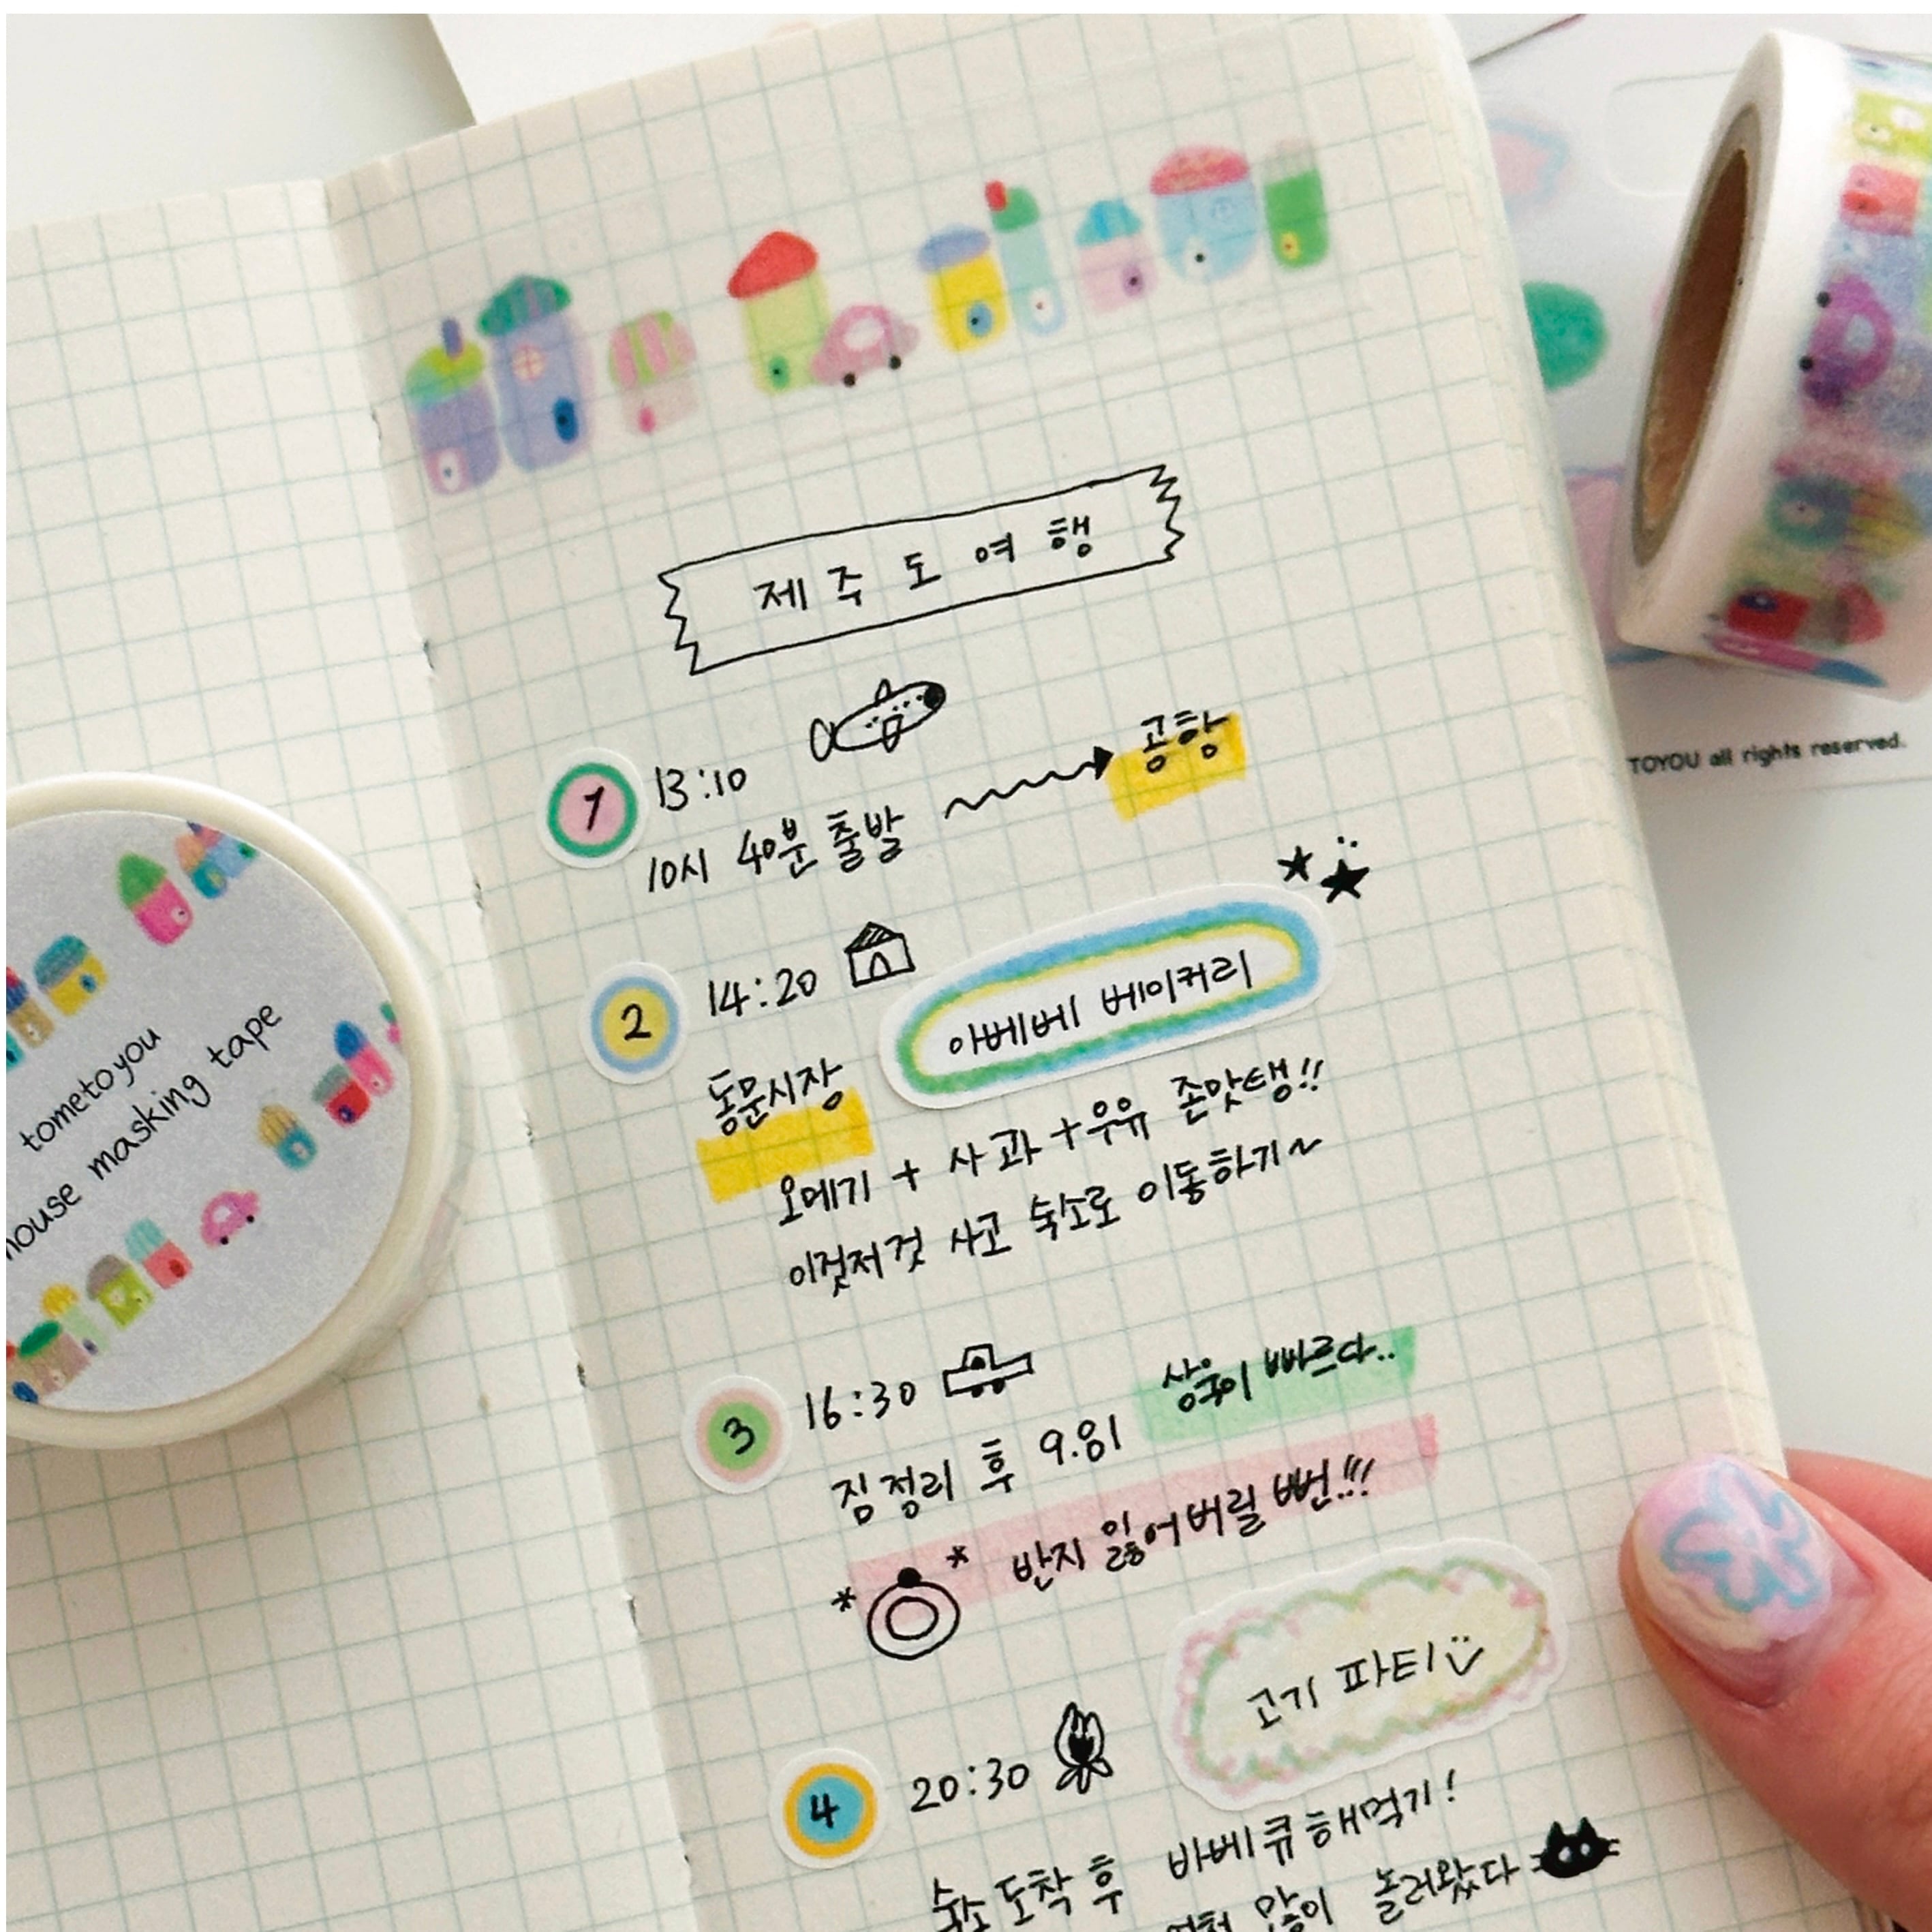 제주도여행
1 13:10
10시 40분 출발 공항
2 14:20 아베베 베이커리
동문시장
오메기 + 사과 + 우유 존맛탱!!
이것저것 사고 숙소로 이동하기~
3 16:30 상웅이 빠르다..
짐정리 후 9.81
반지 잃어버릴 뻔!!!
4 20:30 고기 파티
숙소 도착 후 바베큐 해먹기!
많이 놀러왔다
tometoyou
house masking tape
TOYOU all rights reserved.